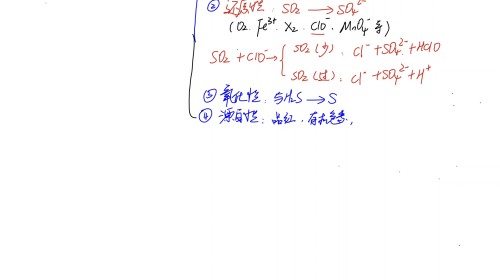 ② 还原性：SO₂ → SO₄²⁻
(O₂. Fe³⁺. X₂. ClO⁻. MnO₄⁻等)
SO₂ + ClO⁻ → { SO₂(少)：Cl⁻ + SO₄²⁻ + HClO
SO₂(过)：Cl⁻ + SO₄²⁻ + H⁺
③ 氧化性：与H₂S → S
④ 漂白性：品红．有机色素，